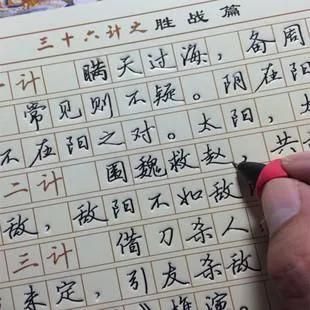 三十六计之胜战篇
一计 瞒天过海，备周
常见则不疑。阴在阳
不在阳之对。太阳，太
二计 围魏救赵，共
敌，敌阳不如敌
三计 借刀杀人
未定，引友杀敌
》推演。